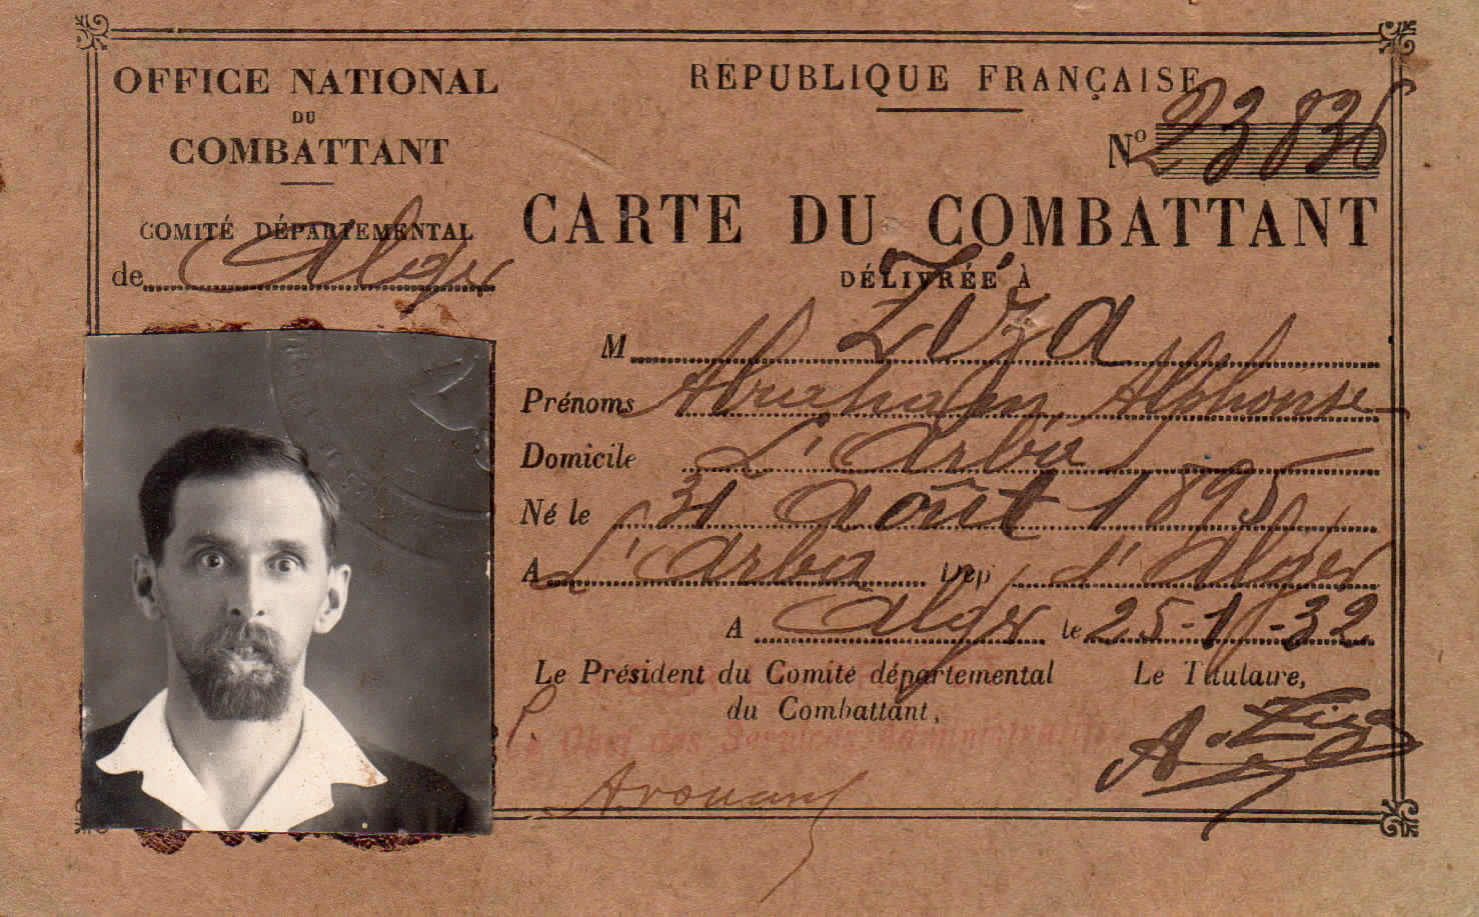 OFFICE NATIONAL
DU
COMBATTANT
COMITÉ DÉPARTEMENTAL
de Alger
RÉPUBLIQUE FRANÇAISE
No 23836
CARTE DU COMBATTANT
DÉLIVRÉE À
M Ziza
Prénoms Abraham Alphonse
Domicile L'Arba
Né le 31 août 1895
A L'Arba Dép d'Alger
A Alger le 25-1-32
Le Président du Comité départemental
du Combattant,
Le Titulaire,
P. Le Chef des Services Administratifs
A. Ziza